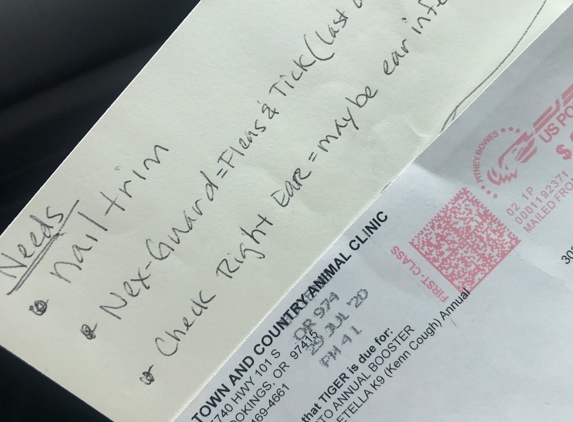 Needs
nail trim
Nex-Guard = Fleas & Tick (last
Check Right Ear = maybe ear infe
PITNEY BOWES
US PO
$
02 1P
0001192371
MAILED FRO
FIRST-CLASS
TOWN AND COUNTRY ANIMAL CLINIC
740 HWY 101 S
OOKINGS, OR 97415
469-4661
OR 974
28 JUL '20
PM 4 L
that TIGER is due for:
TO ANNUAL BOOSTER
ETELLA K9 (Kenn Cough) Annual